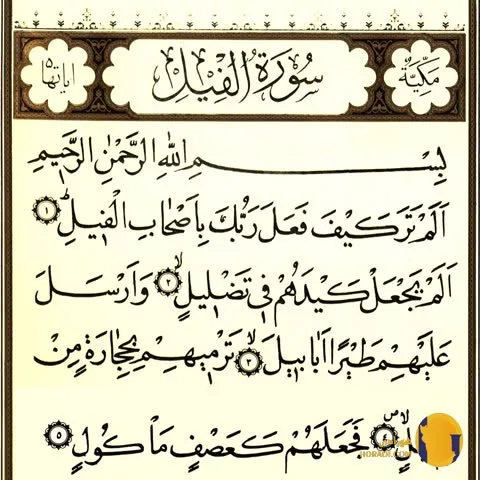 مَكِّيَّةٌ سُورَةُ الْفِيلِ اٰيَاتُهَا ٥
بِسْمِ اللّٰهِ الرَّحْمٰنِ الرَّحِيمِ
اَلَمْ تَرَ كَيْفَ فَعَلَ رَبُّكَ بِاَصْحَابِ الْفِيلِ ۜ ١
اَلَمْ يَجْعَلْ كَيْدَهُمْ فِى تَضْلِيلٍ ۙ ٢ وَاَرْسَلَ
عَلَيْهِمْ طَيْرًا اَبَابِيلَ ۙ ٣ تَرْمِيهِمْ بِحِجَارَةٍ مِنْ
٤ فَجَعَلَهُمْ كَعَصْفٍ مَاْكُولٍ ٥